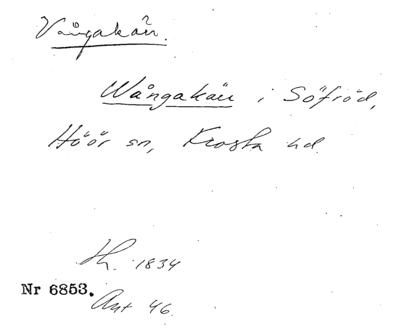 Vångakärr.
Wångakärr i Söfröd,
Höör sn, Frosta hd.
1834
Nr 6853.
Ant 46.